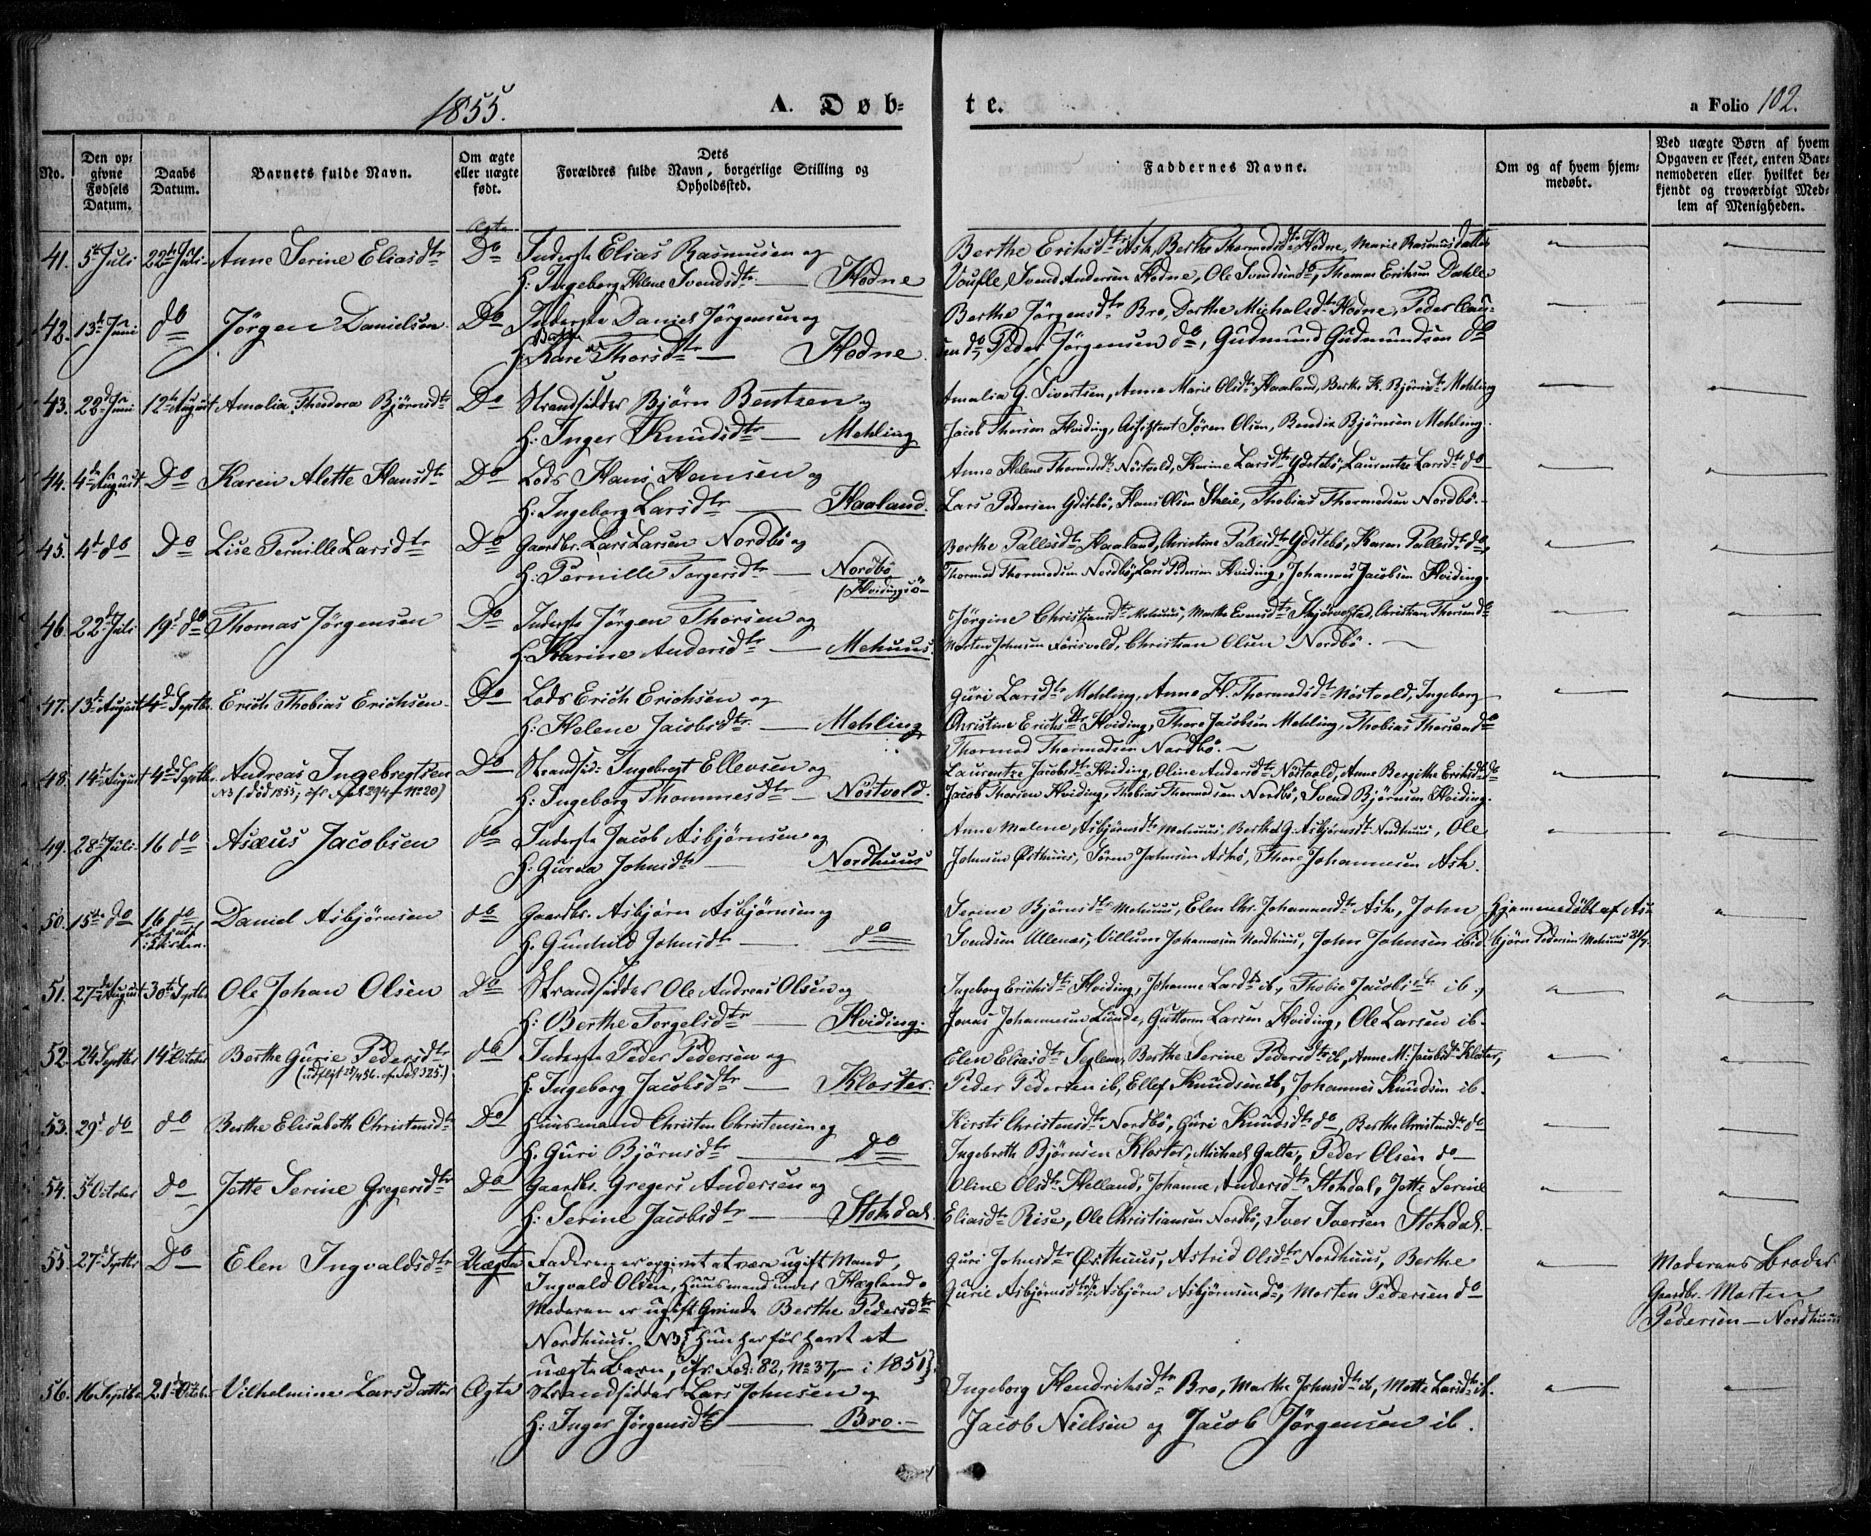 1855.
A. Døb-
te.
a Folio 102.
No.
Den op-
givne
Fødsels
Datum.
Daabs
Datum.
Barnets fulde Navn.
Om ægte
eller uægte
født.
Dets
Forældres fulde Navn, borgerlige Stilling og
Opholdssted.
Faddernes Navne.
Om og af hvem hjem-
medøbt.
Ved uægte Børn af hvem
Opgaven er skeet, enten Bar-
nemoderen eller hvilket be-
kjendt og troværdigt Med-
lem af Menigheden.
Ægte
41. 5te Juli 22de Juli Anne Serine Eliasdtr Do Inderste Elias Rasmusen og
H: Ingeborg Helene Svendsdtr — Hodne
Berthe Erichsdtr Ask, Berthe Thormodsdtr Hodne, Marie Rasmusdatter
Svend Andersen Hodne, Ole Svendsen do, Thomas Erichsen Dahle
42. 13de Juni do Jörgen Danielsen Do Inderste Daniel Jörgensen og
Berthe
H: Kari Thorsdtr — Hodne.
Berthe Jörgensdtr Bro, Dorthe Michalsdtr Hodne, Peder Clau-
sen do, Peder Jörgensen do, Gudmund Gudmundsen do
43. 22de Juni 12te August Amalia Theodora Bjørnsdtr Do Strandsidder Bjørn Bentsen og
H: Inger Knudsdtr — Mehling
Amalia G. Sivertsen, Anne Marie Olsdtr Haaland, Berthe K. Bjørnsdtr Mehling
Jacob Thorsen Hviding, Assistent Søren Olsen, Bendix Bjørnsen Mehling.
44. 4de August Do Karen Alette Hansdtr Do Lods Hans Hansen og
H: Ingeborg Larsdtr — Haaland.
Anne Helene Thormodsdtr Nöstvold, Karine Larsdtr Ydstebö, Laurentze Larsdtr do
Lars Pedersen Ydstebö, Hans Olsen Skeie, Thobias Thormodsen Nordbö.
45. 4de do Do Lise Pernille Larsdtr Do Gaardbr. Lars Larsen Nordbö og
H: Pernille Torgersdtr — Nordbö
(Hvidingsö
Berthe Pallesdtr Haaland, Christine Pallesdtr Ydstebö, Karen Pallesdtr do,
Thormod Thormodsen Nordbö, Lars Pedersen Hviding, Johannes Jacobsen Hviding.
46. 22de Juli 19de do Thomas Jörgensen Do Inderste Jörgen Thorsen og
H: Karine Andersdtr — Mehuus.
Jörgine Christiansdtr Mehuus, Marthe Evensdtr, Christian Thorsen do
Morten Johnsen, Christian Olsen Nordbö.
47. 13de August 4de Septbr. Erich Thobias Erichsen Do Lods Erich Erichsen og
H: Helene Jacobsdtr — Mehling
Guri Larsdtr Mehling, Anne H. Thormodsdtr Nöstvold, Ingeborg
Christine Erichsdtr Hviding, Thore Jacobsen Mehling, Thobias Thorsen do
Thormod Thormodsen Nordbö.
48. 14de August 4de Septbr. Andreas Ingebregtsen Do Strandsid: Ingebregt Ellevsen og
NB (död 1855, cfr. Fol. 294 No 20)
H: Ingeborg Thommesdtr — Nöstvold.
Laurentze Jacobsdtr Hviding, Oline Andersdtr Nöstvold, Anne Bergithe Erichsdtr do
Jacob Thorsen Hviding, Thobias Thormodsen Nordbö, Svend Bjørnsen Hviding.
49. 28de Juli 16 do Asæus Jacobsen do Inderste Jacob Asbjørnsen og
H: Gurea Johnsdtr — Nordhuus
Anne Malene Asbjørnsdtr Mehuus, Berthe G. Asbjørnsdtr Nordhuus, Ole
Johnsen Østhuus, Sören Johnsen Askö, Thore Johannesen Ask.
50. 15de do 16 do Daniel Asbjørnsen do Gaardbr. Asbjørn Asbjørnsen og
i Kirken.
H: Gunhild Johnsdtr — do
Serine Bjørnsdtr Mehuus, Elen Chr. Johannesdtr Ask, John
Svendsen Ullenæs, Villum Johannesen Nordhuus, John Johnsen ibid
Hjemmedöbt af As-
bjørn Pedersen Mehuus
51. 27de August 30te Septbr Ole Johan Olsen Do Strandsidder Ole Andreas Olsen og
H: Berthe Torgelsdtr — Hviding.
Ingeborg Erichsdtr Hviding, Johanne Larsdtr ib, Jacobsdtr ib.,
Jonas Johannesen Lunde, Guttorm Larsen Hviding, Ole Larsen ib.
52. 24 Septbr 14de October Berthe Gurie Pedersdtr do Inderste Peder Pedersen og
H: Ingeborg Jacobsdtr — Kloster.
Elen Eliasdtr Seglem, Berthe Serine Pedersdtr ib, Anne M: Jacobsdtr Kloster,
Peder Pedersen ib, Ellef Knudsen ib, Johannes Knudsen ib.
53. 29de do do Berthe Elisabeth Christensdtr Do Huusmand Christen Christensen og
H: Guri Bjørnsdtr — Do
Kirsti Christensdtr Nordbö, Guri Knudsdtr do, Berthe Christensdtr do
Ingebreth Bjørnsen Kloster, Michael Galta, Peder Olsen do
54. 5te October do Jette Serine Gregersdtr Do Gaardbr. Gregers Andersen og
H: Serine Jacobsdtr — Stohdal.
Oline Olsdtr Helland, Johanne Andersdtr Stohdal, Jette Serine
Eliasdtr Rise, Ole Christiansen Nordbö, Iver Iversen Stohdal.
55. 27de Septbr Do Elen Ingvaldsdtr Uægte Faderen er opgivet at være ugift Mand,
Ingvald Olsen, Huusmand under Hægland.
Moderen er ugift Qvinde Berthe Pedersdtr
Nordhuus. NB (Hun har før havt et
uægte Barn, cfr. Fol: 82, No 37, i 1851).
Guri Johnsdtr Østhuus, Astrid Olsdtr Nordhuus, Berthe
Gurie Asbjørnsdtr do, Asbjørn Asbjørnsen do, Morten Pedersen do
Moderens Broder
Gaardbr. Morten
Pedersen Nordhuus
56. 16 Septbr 21de October Vilhelmine Larsdatter Ægte Strandsidder Lars Johnsen og
H: Inger Jörgensdtr — Bro.
Ingeborg Hendriksdtr Bro, Marthe Johnsdtr ib, Mette Larsdtr ib.
Jacob Nielsen og Jacob Jörgensen ib.